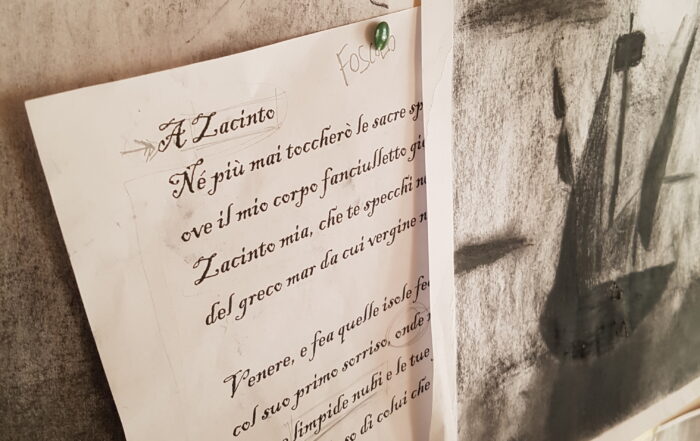 FOSCOLO
A Zacinto
Né più mai toccherò le sacre
ove il mio corpo fanciulletto
Zacinto mia, che te specchi
del greco mar da cui vergine
Venere, e fea quelle isole
col suo primo sorriso, onde
limpide nubi e le tue
di colui che